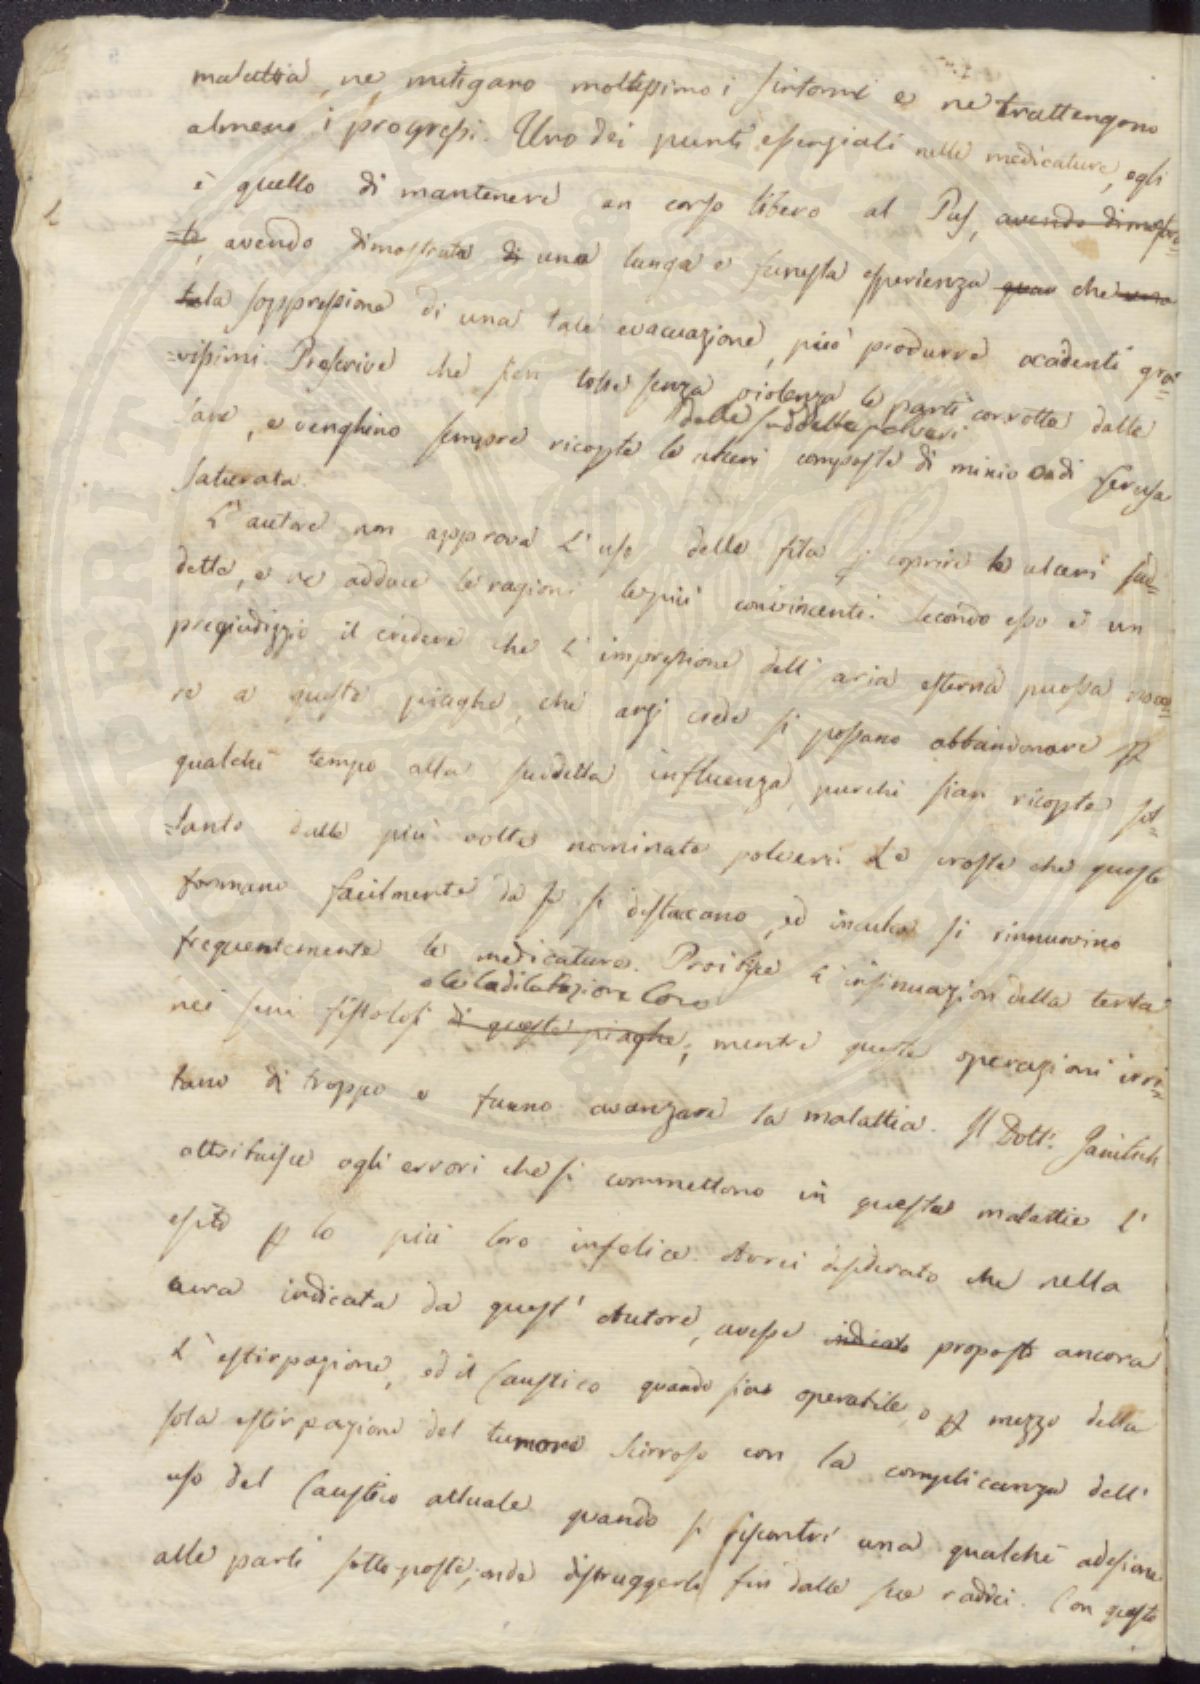 malattia, ne mitigano moltissimo i sintomi e ne trattengono
almeno i progressi. Uno dei punti essenziali nelle medicature, egli
è quello di mantenere un corso libero al Pus, avendo dimostra=
=to, avendo dimostrata di una lunga e funesta esperienza che
la soppressione di una tale evacuazione, può produrre accadenti gra=
=vissimi. Prescrive che sien tolte senza violenza le parti corrotte dalle
delle suddette polveri
, e venghino sempre ricoperte le ulceri composte di minio o di Cerusa
saturata.
L'autore non approva l'uso delle fila p coprire le ulceri sud=
dette, e ne adduce le ragioni le più convincenti. Secondo esso è un
pregiudizzio il credere che l'impressione dell'aria esterna possa nuoce=
re a queste piaghe, che anzi crede si possano abbandonare p
qualche tempo alla suddetta influenza, purchè sian ricoperte sol=
=tanto dalle più volte nominate polveri. Le croste che queste
formano facilmente da se si distaccano, ed inculca si rinnuovino
frequentemente le medicature. Proibisce l'insinuazion della tenta
e la dilatazione loro
nei seni fistolosi di queste piaghe, mentre queste operazioni irri=
tano di troppo e fanno avanzare la malattia. Il Dott:
attribuisce agli errori che si commettono in questa malattia l'
esito p lo più loro infelice. Avrei desiderato che nella
cura indicata da quest'Autore, avesse indicato proposti ancora
l'estirpazione, ed il Caustico quando sia operabile, o p mezzo della
sola estirpazione del tumore scirroso con la complicanza dell'
uso del Caustico attuale quando si riscontri una qualche adesione
alle parti sotto-poste, onde distruggerlo fin dalle sue radici. Con queste